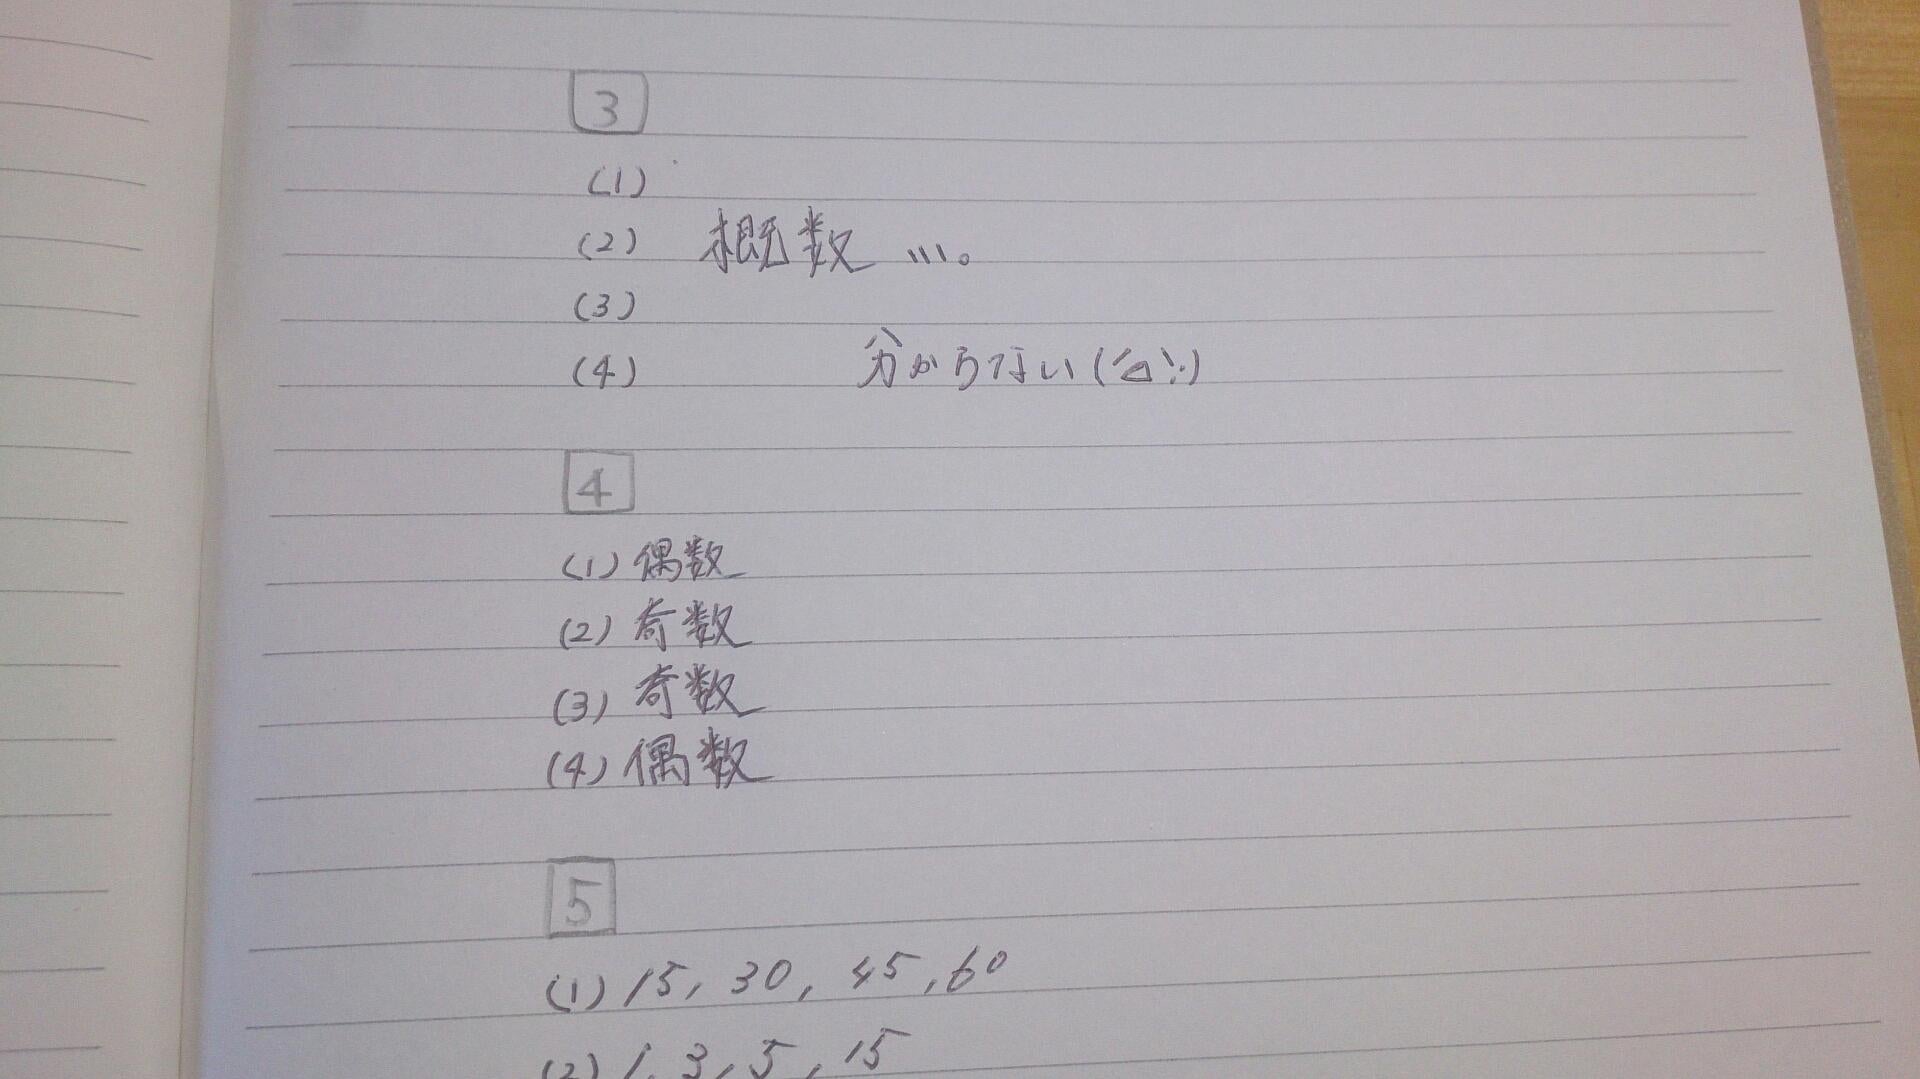 3
(1)
(2) 概数 ...。
(3)
(4) 分からない(´△`;)
4
(1) 偶数
(2) 奇数
(3) 奇数
(4) 偶数
5
(1) 15, 30, 45, 60
(2) 1, 3, 5, 15